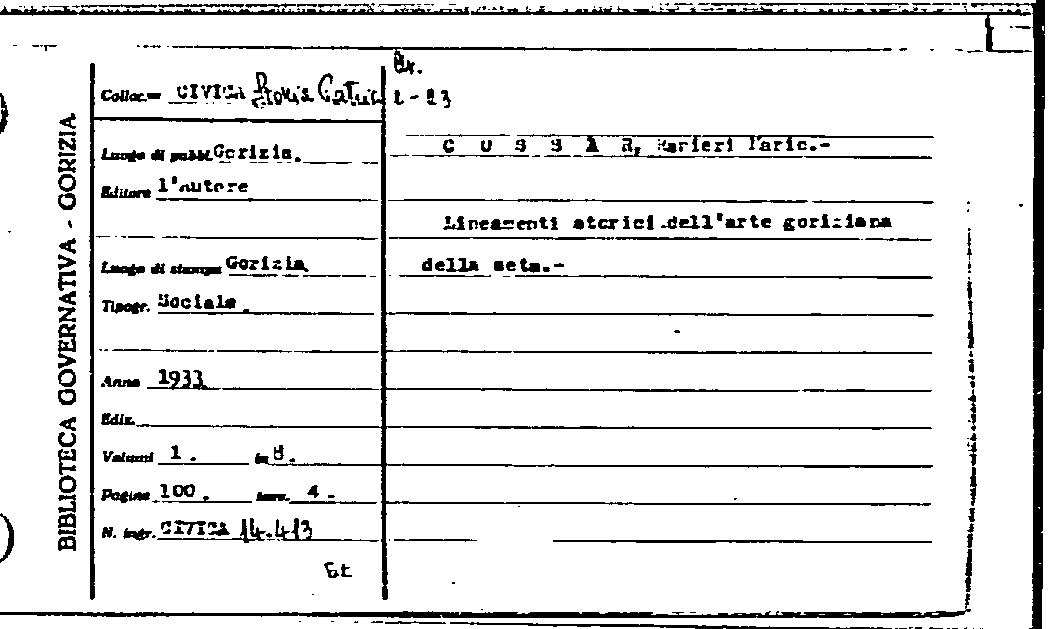 BIBLIOTECA GOVERNATIVA - GORIZIA
Colloc.= CIVICA
Luogo di pubbl. Gorizia.
Editore l'autore
Luogo di stampa Gorizia
Tipogr. Sociale.
Anno 1933
Ediz.
Volumi 1. in 8.
Pagine 100. tavv. 4.
N. ingr. CIVICA 14.413
C U S S A R, Ranieri Mario.-
Lineamenti storici dell'arte goriziana
della seta.-